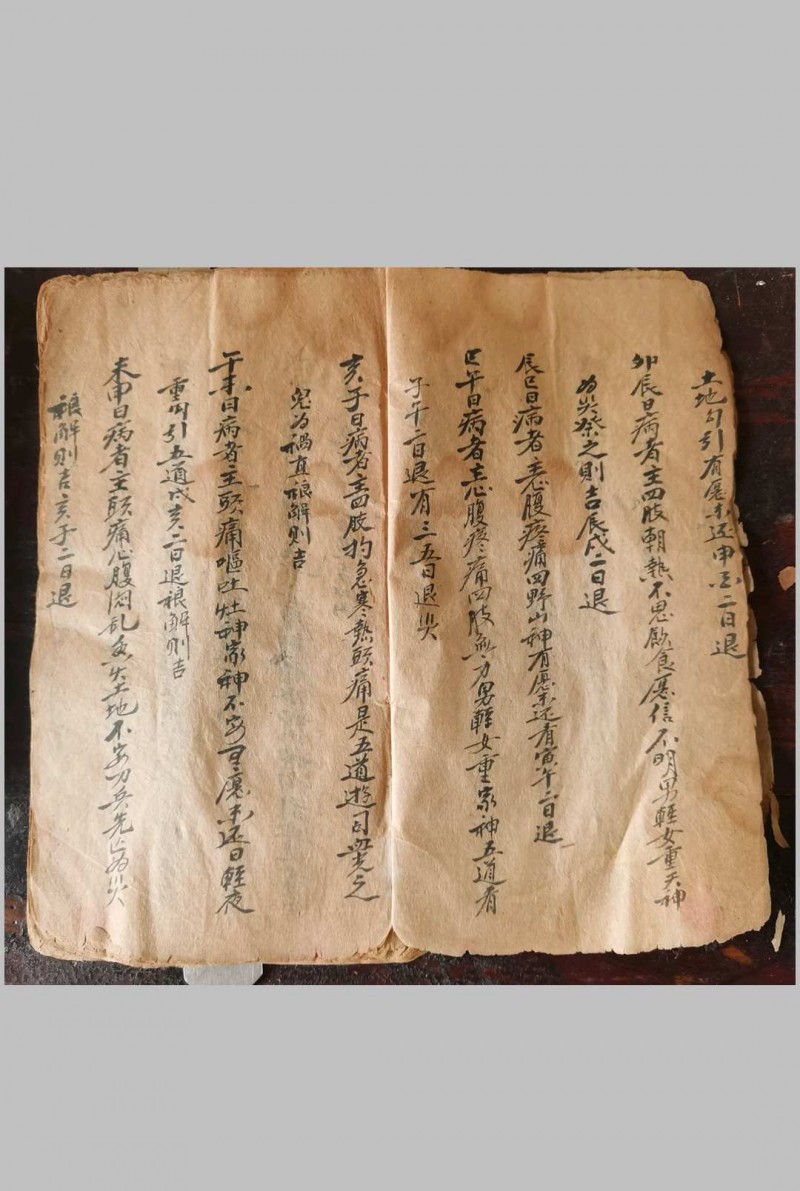 土地勾引有愿未还申亥二日退
卯辰日病者主四肢朝热不思飲食愿信不明男輕女重天神
为災祭之則吉辰戌二日退
辰巳日病者主心腹疼痛四野山神有愿未还看寅午二日退
巳午日病者主心腹疼痛四肢無力男輕女重家神五道看
子午二日退有三五日退災
亥子日病者主四肢拘急寒熱頭痛是五道遊司無之
鬼为禍直禳解則吉
午未日病者主頭痛嘔吐灶神家神不安有愿未还日輕夜
重勾引五道戌亥二日退禳解則吉
未申日病者主頭痛心腹闷乱土地不安刀兵先亡为災
禳解則吉亥子二日退